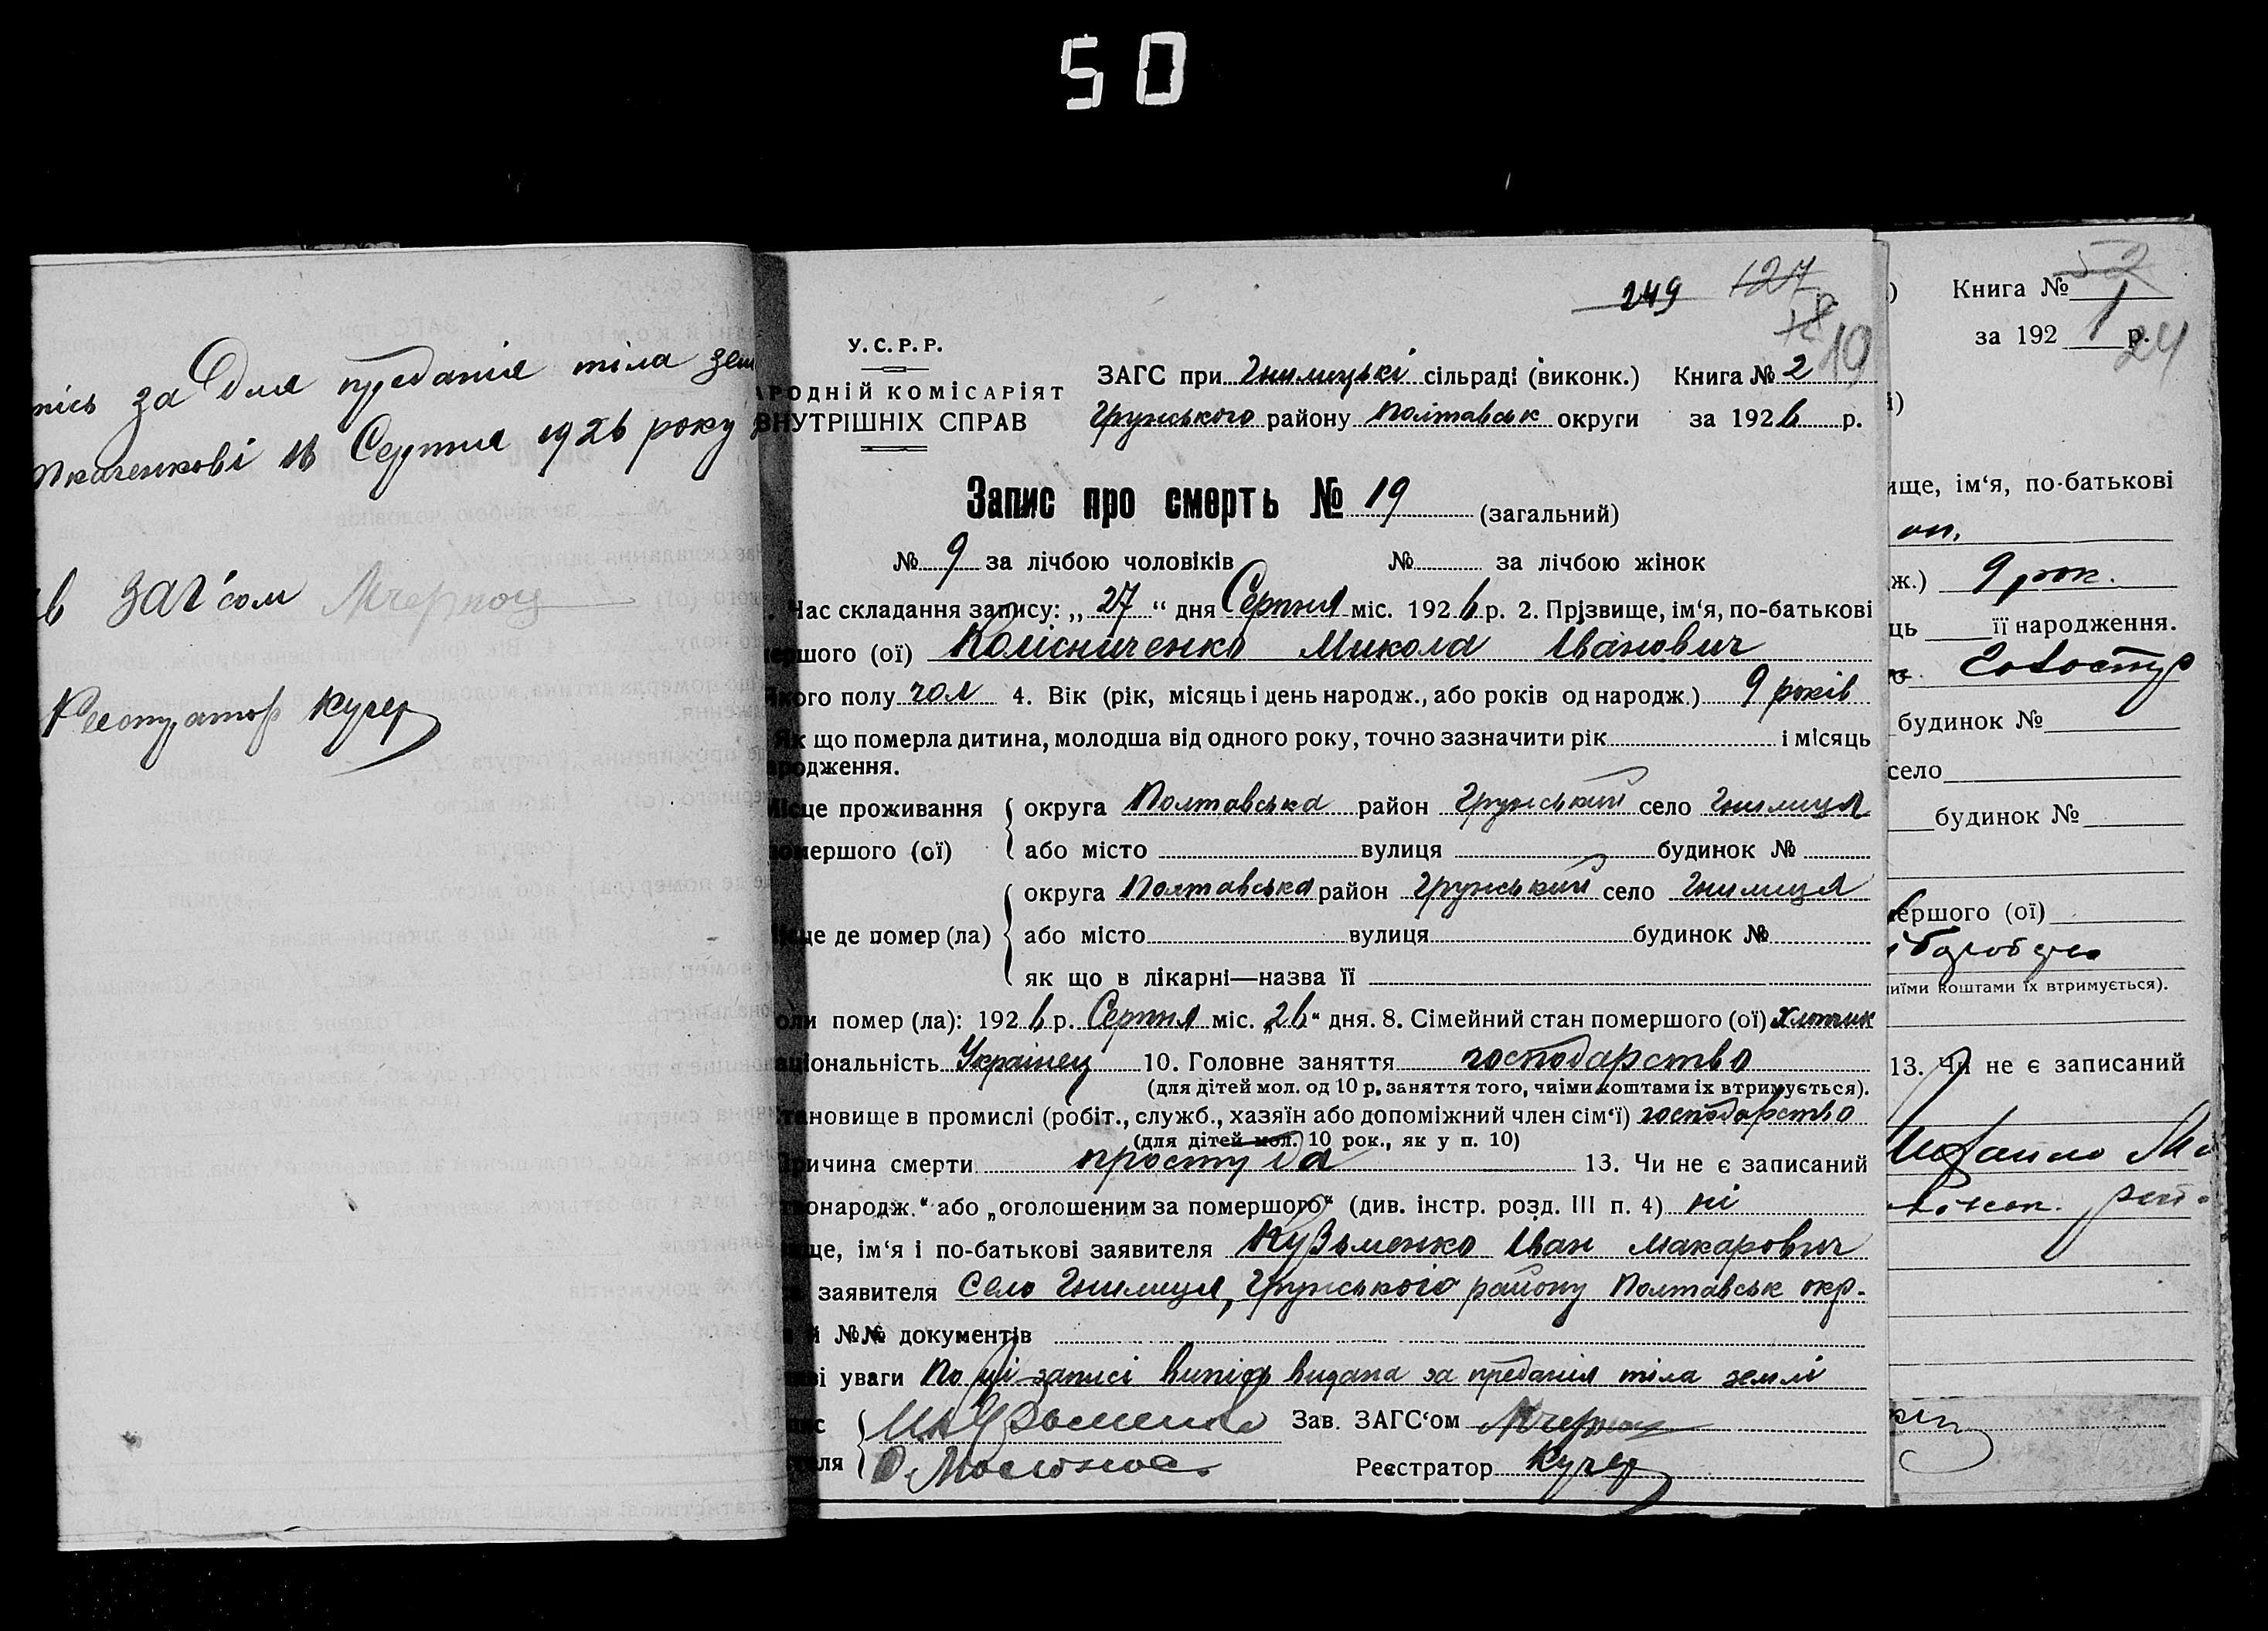 50
за Для предания тіла
Ткаченкові 18 Серпня 1926 року
ЗАГ'сом
Реєстратор Кучер
249 127
19
У.С.Р.Р.
АРОДНІЙ КОМІСАРІЯТ
ВНУТРІШНІХ СПРАВ
ЗАГС при Гнилицькі сільраді (виконк.) Книга № 2
Грунського району Полтавськ округи за 1926 р.
Запис про смерть № 19 (загальний)
№ 9 за лічбою чоловіків № за лічбою жінок
. Час складання запису: „ 27 “ дня Серпня міс. 1926 р. 2. Прізвище, ім‘я, по-батькові
ершого (ої) Колісниченко Микола Іванович
кого полу чол 4. Вік (рік, місяць і день народж., або років од народж.) 9 років
Як що померла дитина, молодша від одного року, точно зазначити рік і місяць
ародження.
Місце проживання округа Полтавська район Грунський село Гнилиця
омершого (ої) або місто вулиця будинок №
округа Полтавська район Грунський село Гнилиця
це де помер (ла) або місто вулиця будинок №
як що в лікарні—назва її
оли помер (ла): 1926 р. Серпня міс. „26“ дня. 8. Сімейний стан помершого (ої) хлопчик
аціональність Українец 10. Головне заняття господарство
(для дітей мол. од 10 р, заняття того, чиїми коштами їх втримується).
тановище в промислі (робіт., служб., хазяїн або допоміжний член сім‘ї) господарство
(для дітей мол. 10 рок., як у п. 10)
ричина смерти простуда 13. Чи не є записаний
онародж.“ або „оголошеним за помершого“ (див. інстр. розд. III п. 4) ні
ще, ім‘я і по-батькові заявителя Кузьменко Іван Макарович
заявителя Село Гнилиця, Грунського району Полтавськ окр.
й №№ документів
і уваги По ції записі випісь видана за предания тіла землі
Зав. ЗАГС‘ом
Реєстратор Кучер
Книга № 1
за 192 р.
24
ище, ім‘я, по-батькові
ж.) 9 рок.
ць її народження.
будинок №
село
будинок №
ершого (ої)
иїми коштами їх втримується).
13. Чи не є записаний